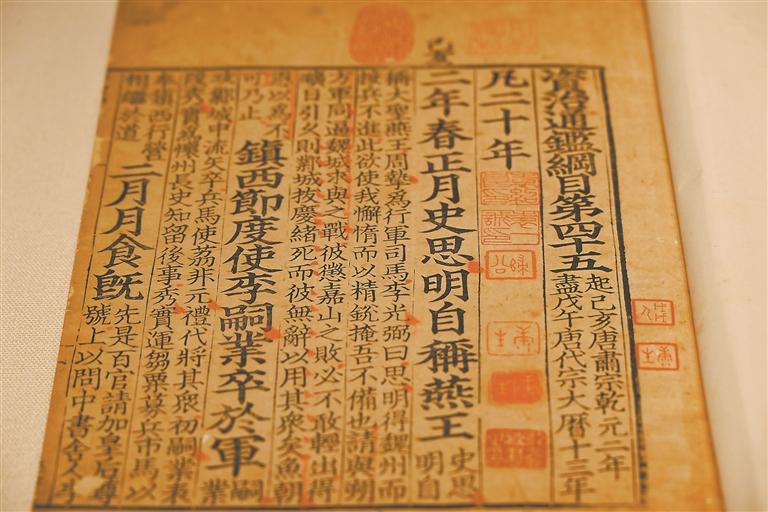 資治通鑑綱目第四十五
起己亥唐肅宗乾元二年
盡戊午唐代宗大曆十三年
凡二十年
己亥
二年春正月史思明自稱燕王
史思
明自
稱大聖燕王周摯爲行軍司馬李光弼曰思明得魏州而
按兵不進此欲使我懈惰而以精銳掩吾不備也請與朔
方軍同逼魏城求與之戰彼懲嘉山之敗必不敢輕出得
曠日引久則鄴城拔慶緒死而彼無辭以用其衆矣魚朝
恩以爲不
可乃止
鎮西節度使李嗣業卒於軍
嗣
業
攻鄴城中流矢卒兵馬使荔非元禮代將其衆初嗣業表
段秀實爲懷州長史知留後事秀實運芻粟募兵市馬以
奉鎮西行營
相繼於道
二月月食旣
先是百官請加皇后尊
號上以問中書舍人李